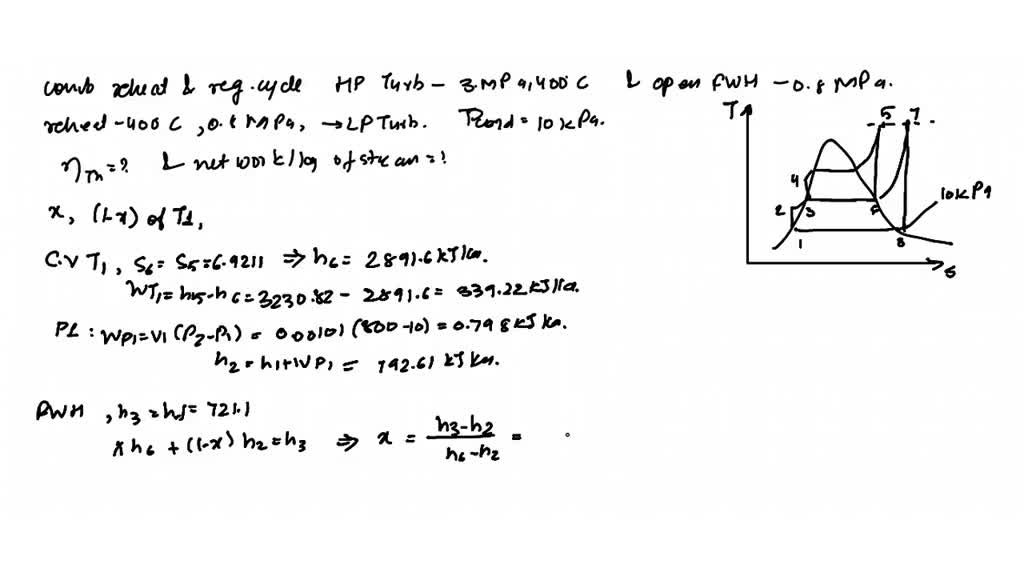 comb reheat & reg. cycle HP Turb - 3 MPa, 400°C & open FWH - 0.8 MPa.
reheat - 400 C, 0.8 MPa, → LP Turb. Pcond = 10 kPa.
ηTh = ? & net work / kg of steam = ?
x, (1-x) of T1,
C.V T1, S6 = S5 = 6.9211 ⇒ h6 = 2891.6 kJ/kg.
WT1 = h5 - h6 = 3230.82 - 2891.6 = 339.22 kJ/kg.
P1 : WP1 = V1 (P2 - P1) = 0.00101 (800 - 10) = 0.798 kJ/kg.
h2 = h1 + WP1 = 192.61 kJ/kg.
FWH, h3 = hf = 721.1
x h6 + (1-x) h2 = h3 ⇒ x = (h3 - h2) / (h6 - h2) =
T
5 7
4
10 kPa
2 3 6
1 8
s